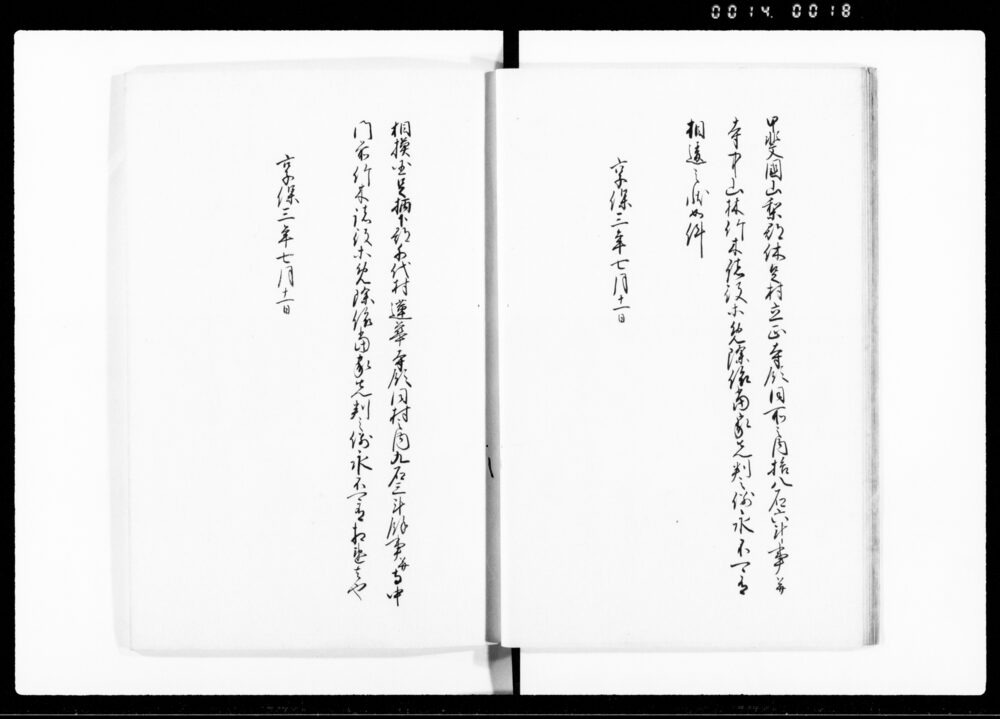 0014 0018
甲斐国山梨郡休息村立正寺領同所之内拾八石六斗事并
寺中山林竹木諸役等免除依当家先判之例永不可有
相違之状如件
享保三年七月十一日
相模国足柄下郡千代村蓮華寺領同村之内九石三斗余事并寺中
門前竹木諸役等免除依当家先判之例永不可有相違者也
享保三年七月十一日